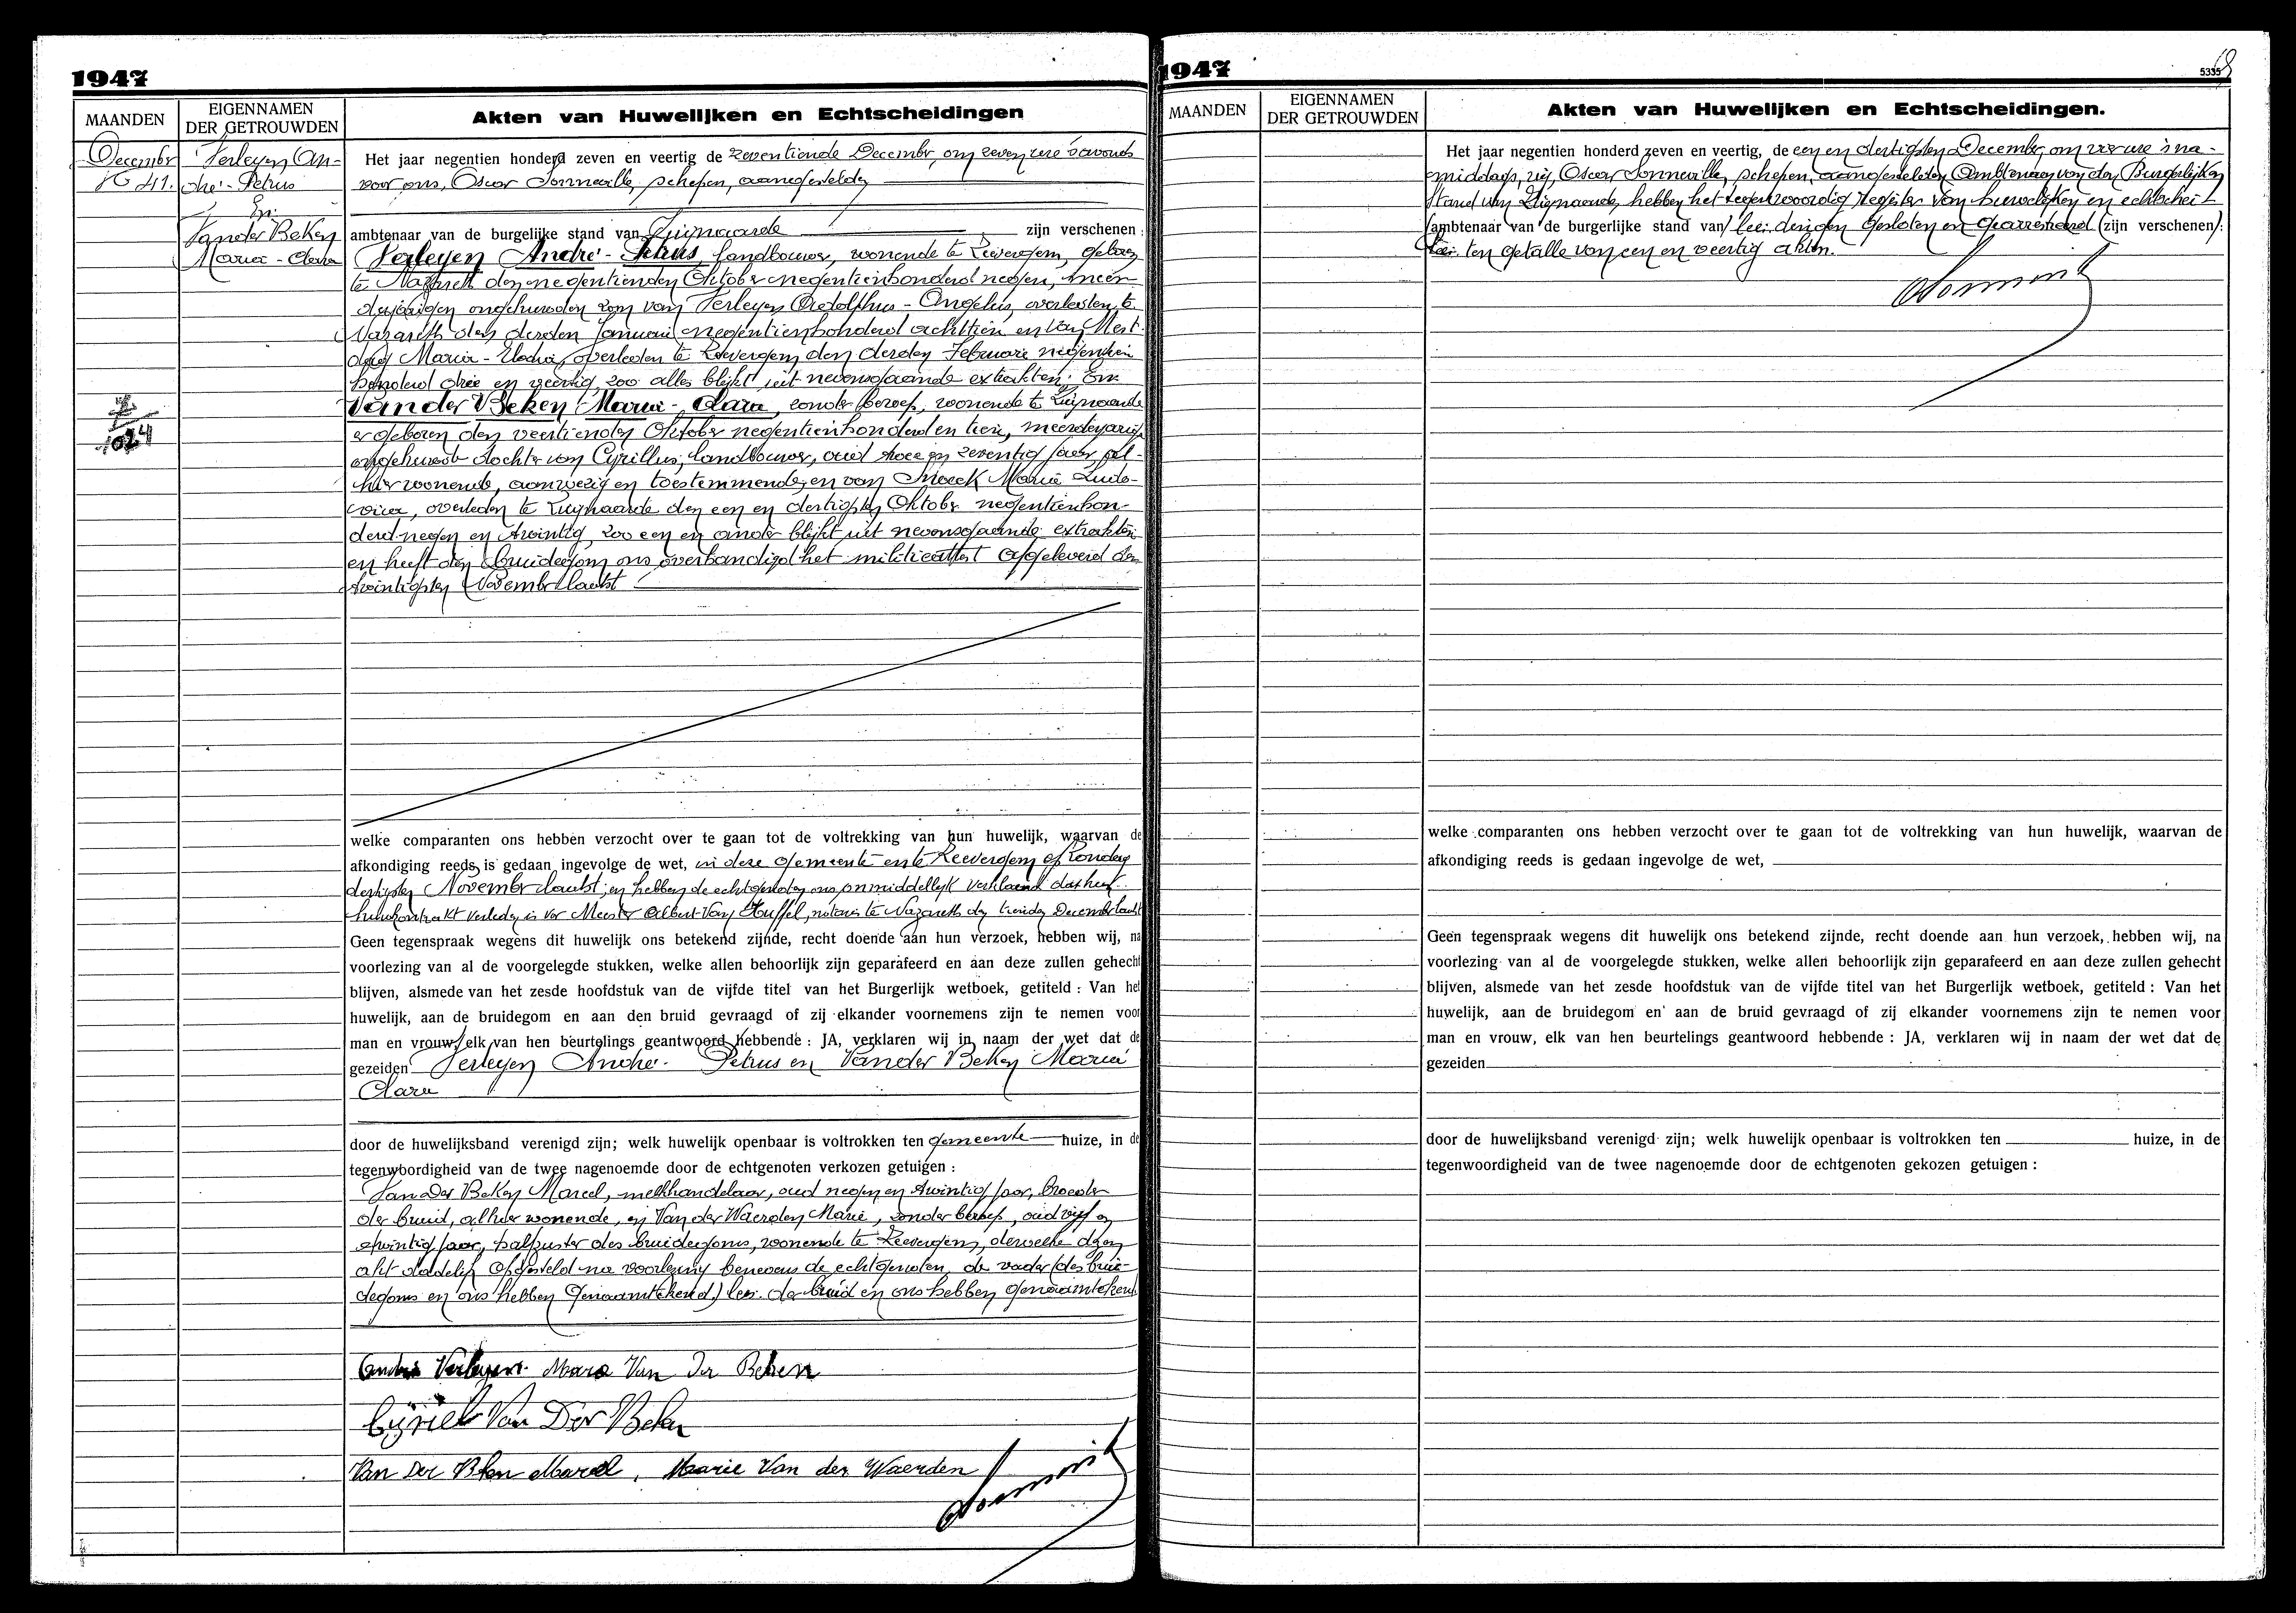 1947
MAANDEN
EIGENNAMEN
DER GETROUWDEN
Akten van Huwelijken en Echtscheidingen
December
N° 41.
Verleyen An-
dré-Petrus
En
Van der Beken
Maria-Clara
Het jaar negentien honderd zeven en veertig de zeventiende December, om zeven ure 's avonds
voor ons, Oscar Sonneville, schepen, aangestelden
ambtenaar van de burgelijke stand van Zwijnaarde zijn verschenen:
Verleyen André-Petrus, landbouwer, wonende te Zevergem, geboren
te Nazareth den negentienden Oktober negentienhonderd negen, meer-
derjarigen ongehuwden zoon van Verleyen Adolphus-Angelus, overleden te
Nazareth den derden Januari negentienhonderd achttien en van Mest-
dag Maria-Elodia, overleden te Zevergem den derden Februari negentien
honderd drie en veertig, zoo alles blijkt uit nevensgaande extrakten; En
Van der Beken Maria-Clara, zonder beroep, wonende te Zwijnaarde
er geboren den veertienden Oktober negentienhonderd en tien, meerderjarige
ongehuwde dochter van Cyrillus, landbouwer, oud twee en zeventig jaar al-
hier wonende, aanwezig en toestemmende, en van Snoeck Maria Ludo-
vica, overleden te Zwijnaarde den een en dertigsten Oktober negentienhon-
derd negen en twintig, zoo een en ander blijkt uit nevensgaande extrakten
en heeft den bruidegom ons overhandigd het militieattest afgeleverd den
twintigsten November laatst
welke comparanten ons hebben verzocht over te gaan tot de voltrekking van hun huwelijk, waarvan de
afkondiging reeds is gedaan ingevolge de wet, in deze gemeente en te Zevergem op Zondag
dertigsten November laatst; en hebben de echtgenoten ons onmiddellijk verklaard dat hun
huwkontrakt verleden is vor Meester Albert Van Huffel, notaris te Nazareth den tienden December laatst
Geen tegenspraak wegens dit huwelijk ons betekend zijnde, recht doende aan hun verzoek, hebben wij, na
voorlezing van al de voorgelegde stukken, welke allen behoorlijk zijn geparafeerd en aan deze zullen gehecht
blijven, alsmede van het zesde hoofdstuk van de vijfde titel van het Burgerlijk wetboek, getiteld : Van het
huwelijk, aan de bruidegom en aan den bruid gevraagd of zij elkander voornemens zijn te nemen voor
man en vrouw, elk van hen beurtelings geantwoord hebbende : JA, verklaren wij in naam der wet dat de
gezeiden Verleyen André-Petrus en Van der Beken Maria
Clara
door de huwelijksband verenigd zijn; welk huwelijk openbaar is voltrokken ten gemeente huize, in de
tegenwoordigheid van de twee nagenoemde door de echtgenoten verkozen getuigen :
Van der Beken Marcel, melkhandelaar, oud negen en twintig jaar, broeder
der bruid, alhier wonende, en Van der Waerden Marie, zonder beroep, oud vijf en
twintig jaar, halfzuster des bruidegoms, wonende te Zevergem, dewelke dezen
akt dadelijk opgesteld na voorlezing benevens de echtgenoten, de vader (des brui-
degoms en ons hebben genaamtekend) lees: der bruid en ons hebben genaamtekend
André Verleyen Mara Van Der Beken
Cÿriel Van Der Beken
Van Der Beken Marcel, Marie Van der Waerden
1947
5335
MAANDEN
EIGENNAMEN
DER GETROUWDEN
Akten van Huwelijken en Echtscheidingen.
Het jaar negentien honderd zeven en veertig, de een en dertigsten December, om vier ure 's na-
middags, wij, Oscar Sonneville, schepen, aangestelden Ambtenaar van den Burgerlijken
Stand van Zwijnaarde, hebben het tegenwoordig Register van huwelijken en echtschei-
(ambtenaar van de burgerlijke stand van) lees: dingen gesloten en gearresteerd (zijn verschenen):
lees: ten getalle van een en veertig akten.
welke comparanten ons hebben verzocht over te gaan tot de voltrekking van hun huwelijk, waarvan de
afkondiging reeds is gedaan ingevolge de wet,
Geen tegenspraak wegens dit huwelijk ons betekend zijnde, recht doende aan hun verzoek, hebben wij, na
voorlezing van al de voorgelegde stukken, welke allen behoorlijk zijn geparafeerd en aan deze zullen gehecht
blijven, alsmede van het zesde hoofdstuk van de vijfde titel van het Burgerlijk wetboek, getiteld : Van het
huwelijk, aan de bruidegom en aan de bruid gevraagd of zij elkander voornemens zijn te nemen voor
man en vrouw, elk van hen beurtelings geantwoord hebbende : JA, verklaren wij in naam der wet dat de
gezeiden
door de huwelijksband verenigd zijn; welk huwelijk openbaar is voltrokken ten huize, in de
tegenwoordigheid van de twee nagenoemde door de echtgenoten gekozen getuigen :